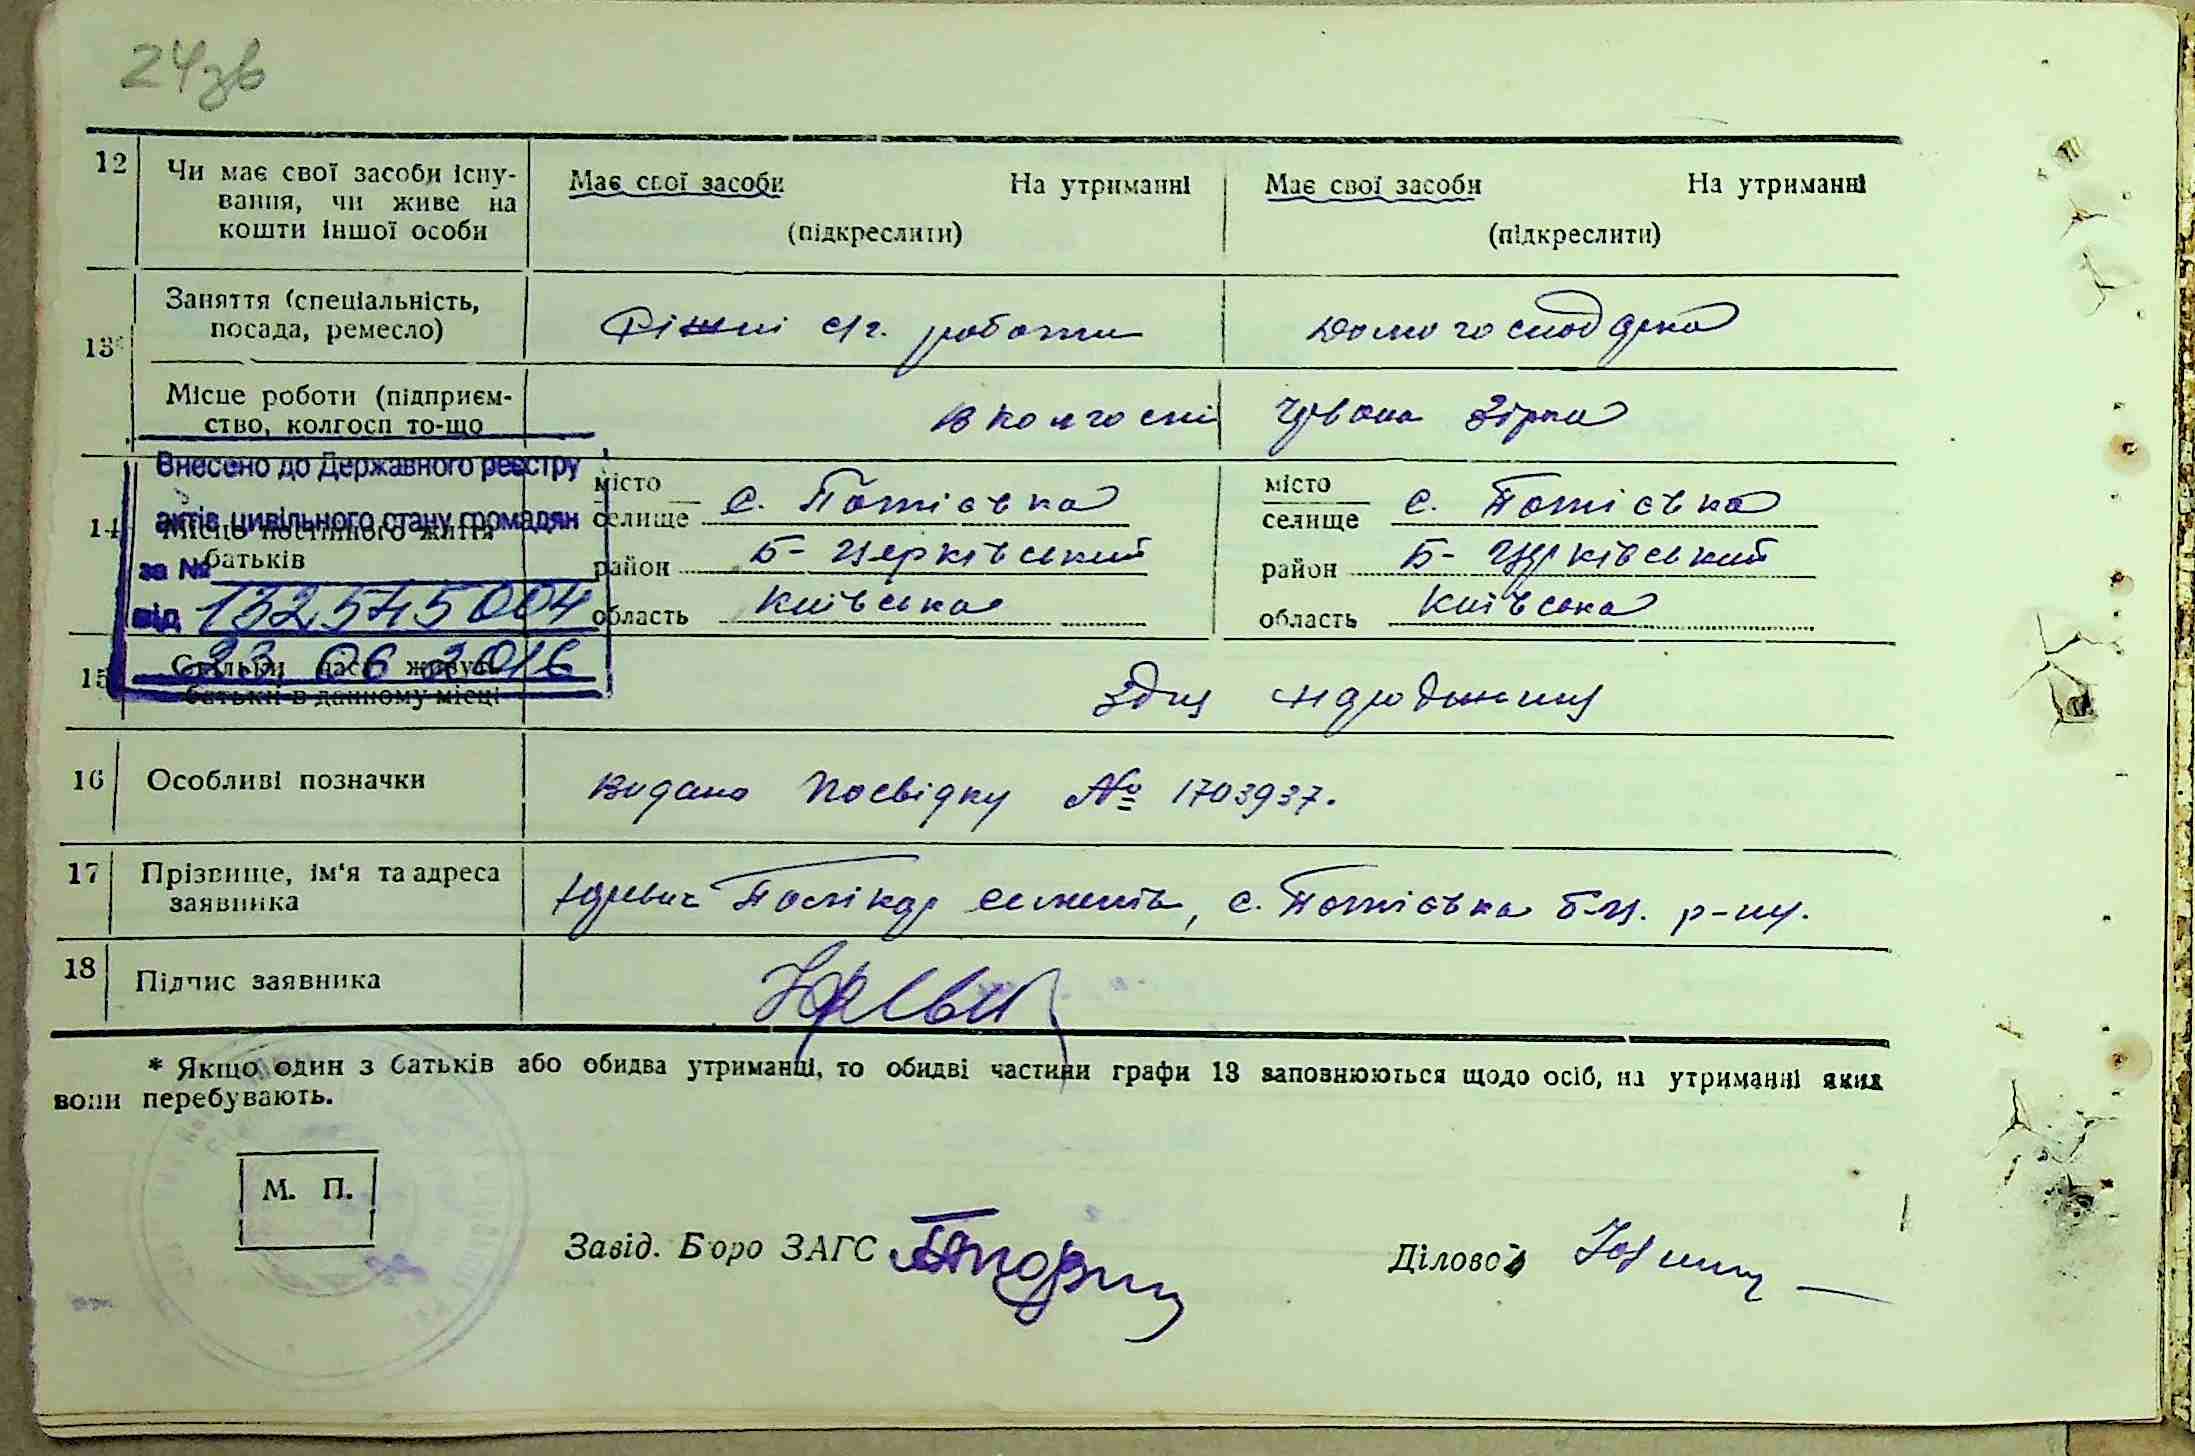 24зв
12
Чи має свої засоби існу-
вання, чи живе на
кошти іншої особи
Має свої засоби На утриманні
(підкреслити)
Має свої засоби На утриманні
(підкреслити)
13*
Заняття (спеціальність,
посада, ремесло)
Ріжні с/г. роботи
домогосподарка
Місце роботи (підприєм-
ство, колгосп то-що
В колгоспі Червона Зірка
Внесено до Державного реєстру
актів цивільного стану громадян
за №
132545004
від
23 06 2016
14
Місце постійного життя
батьків
місто
селище с. Потієвка
район Б-Церківський
область Київська
місто
селище с. Потієвка
район Б-Церківський
область Київська
15
Скільки часу живуть
батьки в данному місці
З дня народження
16
Особливі позначки
Видано посвідку № 1703937.
17
Прізвище, ім'я та адреса
заявника
с. Потієвка Б-Ц. р-ну.
18
Підпис заявника
* Якщо один з батьків або обидва утриманці, то обидві частини графи 13 заповнюються щодо осіб, на утриманні яких
вони перебувають.
М. П.
Завід. Бюро ЗАГС
Діловод